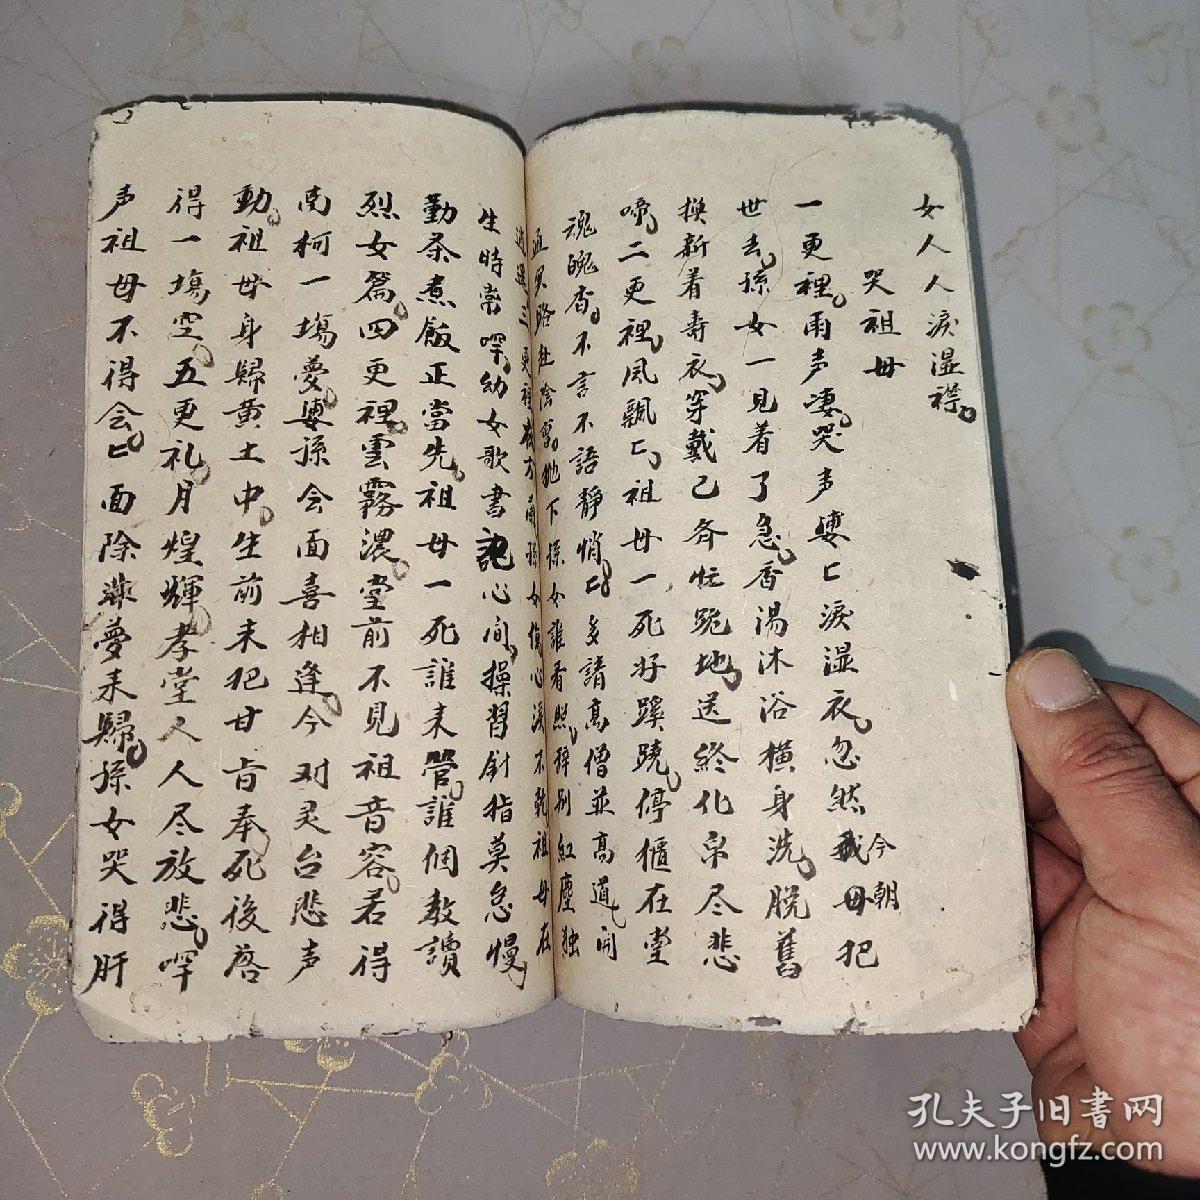 女人人淚湿襟
哭祖母
一更裡雨声凄哭声婆匕淚湿衣忽然我母把
今朝
世去孫女一見着了急香湯沐浴横身洗脱舊
换新着壽衣穿戴己各忙跪地送終化帛尽悲
啼二更裡风飄匕祖母一死好蹊蹺停柩在堂
魂魄杳不言不語靜悄匕多請高僧並高道开
路赴陰曹抛下孫女誰看照辞别紅塵独
逍遥三更裡孫女傷心淚不乾祖母在
生時常啈幼女歌書記心间操習針指莫怠慢
勤茶煮飯正當先祖母一死誰来管誰個教讀
烈女篇四更裡雲霧濃堂前不見祖音容若得
南柯一塲夢婆孫会面喜相逢今对灵台悲声
動祖母身歸黄土中生前未把甘旨奉死後啓
得一塲空五更礼月煌輝孝堂人人尽放悲啈
声祖母不得会匕面除非夢来歸孫女哭得肝
孔夫子旧书网
www.kongfz.com